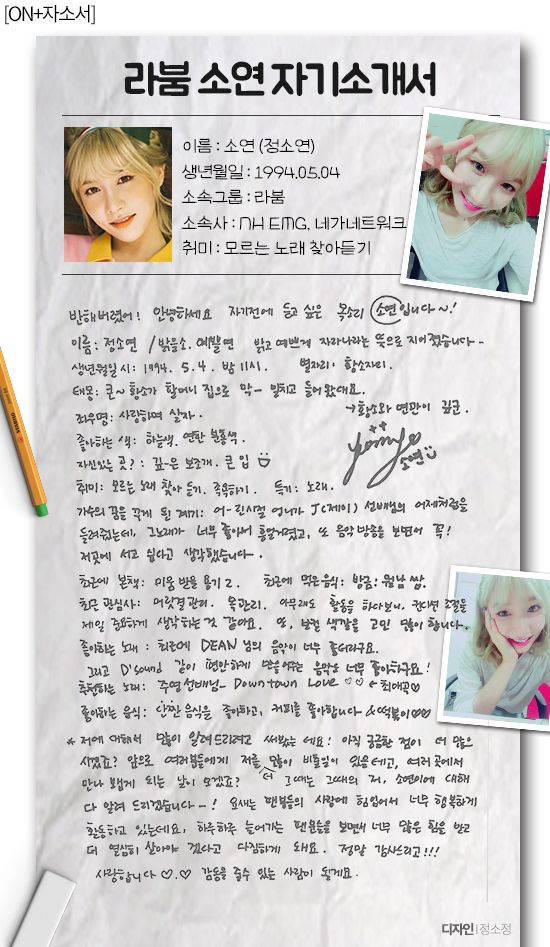 [ON+자소서]
라붐 소연 자기소개서
이름 : 소연 (정소연)
생년월일 : 1994.05.04
소속그룹 : 라붐
소속사 : NH EMG, 네가네트워크
취미 : 모르는 노래 찾아듣기
반해버렸어! 안녕하세요 자기전에 듣고 싶은 목소리 소연입니다~!
이름: 정소연 / 밝을소. 예쁠연 밝고 예쁘게 자라나라는 뜻으로 지어졌습니다-
생년월일시: 1994. 5. 4. 밤 11시. 별자리: 황소자리.
태몽: 큰~ 황소가 할머니 집으로 막- 밀치고 들어왔대요.
→황소와 연관이 깊군.
좌우명: 사랑하며 살자.
좋아하는 색: 하늘색, 연한 분홍색.
자신있는 곳?: 깊은 보조개. 큰 입
소연
취미: 모르는 노래 찾아 듣기. 족욕하기. 특기: 노래.
가수의 꿈을 꾸게 된 계기: 어-린시절 언니가 J(제이) 선배님의 어제처럼을
들려줬는데, 그노래가 너무 좋아서 흥얼거렸고, 또 음악방송을 보면서 꼭!
저곳에 서고 싶다고 생각했습니다.
최근에 본책: 미움받을 용기2. 최근에 먹은음식: 방금! 월남쌈.
최근 관심사: 머릿결관리. 목관리. 아무래도 활동을 하다보니, 컨디션 조절을
제일 중요하게 생각하는것 같아요. 또, 보컬 색깔을 고민 많이 합니다.
좋아하는 노래: 최근에 DEAN 님의 음악이 너무 좋더라구요.
그리고 D'sound 같이 편안하게 만들어주는 음악도 너무 좋아하구요!
추천하는 노래: 주영선배님- Downtown Love ♡♡ ←최애곡♡
좋아하는 음식: 단짠 음식을 좋아하고, 커피를 좋아합니다 &떡볶이♡♡
* 저에 대해서 많이 알려드리려고 써봤는데요! 아직 궁금한 점이 더 많으
시겠죠? 앞으로 여러분들에게 저를 더 많이 비출일이 있을테고, 여러곳에서
만나 뵙게 되는 날이 오겠죠? 그때는 그때의 저, 소연이에 대해
다 알려 드리겠습니다~! 요새는 팬분들의 사랑에 힘입어서 너무 행복하게
활동하고 있는데요, 하루하루 늘어가는 팬분들을 보면서 너무 많은 힘을 받고
더 열심히 살아야 겠다고 다짐하게 돼요. 정말 감사드리고!!!
사랑합니다♡.♡ 감동을 줄수 있는 사람이 될게요.
디자인 | 정소정